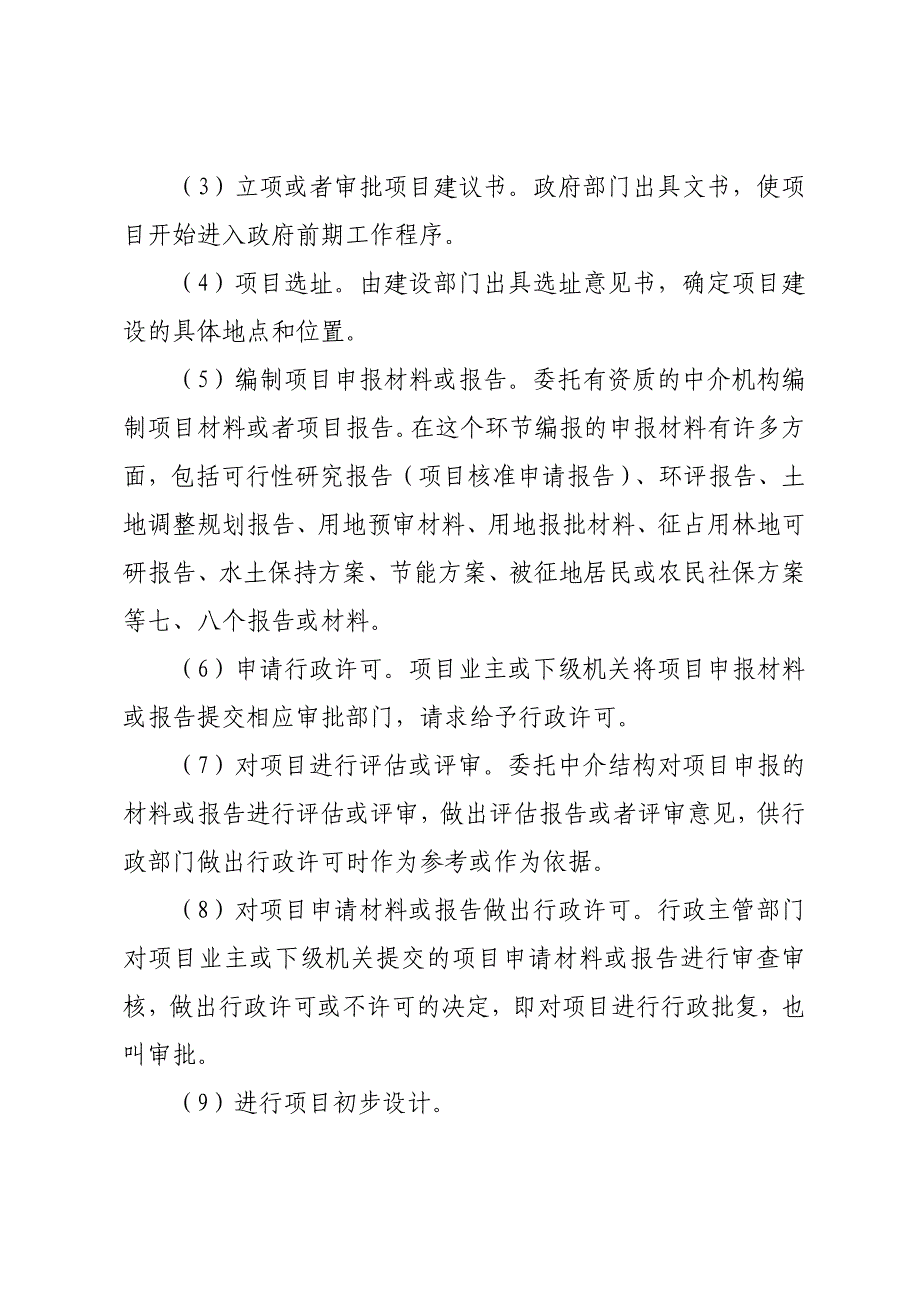 （3）立项或者审批项目建议书。政府部门出具文书，使项
目开始进入政府前期工作程序。
（4）项目选址。由建设部门出具选址意见书，确定项目建
设的具体地点和位置。
（5）编制项目申报材料或报告。委托有资质的中介机构编
制项目材料或者项目报告。在这个环节编报的申报材料有许多方
面，包括可行性研究报告（项目核准申请报告）、环评报告、土
地调整规划报告、用地预审材料、用地报批材料、征占用林地可
研报告、水土保持方案、节能方案、被征地居民或农民社保方案
等七、八个报告或材料。
（6）申请行政许可。项目业主或下级机关将项目申报材料
或报告提交相应审批部门，请求给予行政许可。
（7）对项目进行评估或评审。委托中介结构对项目申报的
材料或报告进行评估或评审，做出评估报告或者评审意见，供行
政部门做出行政许可时作为参考或作为依据。
（8）对项目申请材料或报告做出行政许可。行政主管部门
对项目业主或下级机关提交的项目申请材料或报告进行审查审
核，做出行政许可或不许可的决定，即对项目进行行政批复，也
叫审批。
（9）进行项目初步设计。